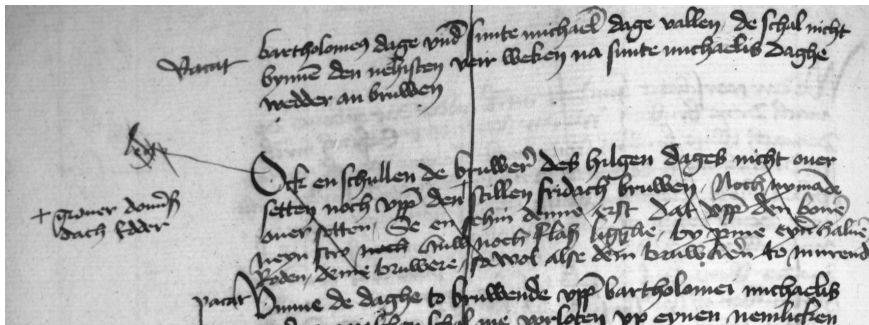 bartholomeus dage vnd sunte michael dage vallen, de schal nicht
Vacat bynnen den nehisten veir weken na sunte michaelis daghe
wedder an bruwen
Ock en schullen de bruwer des hilgen dages nicht ouer
setten noch vpp den stillen fridach bruwen. Noch nymande
+ groner donrs
dach edder
ouer setten, Se en sehin denne erst dat vpp den bonen
neyn stro noch noch flas ligghe, by eyn haluen
Roden, deme bruwere, so wol alse dem bruwheren to murende
vacat Vmme de daghe to bruwende vpp bartholomei michaelis
schal me vorloten vp eynen nemlicken